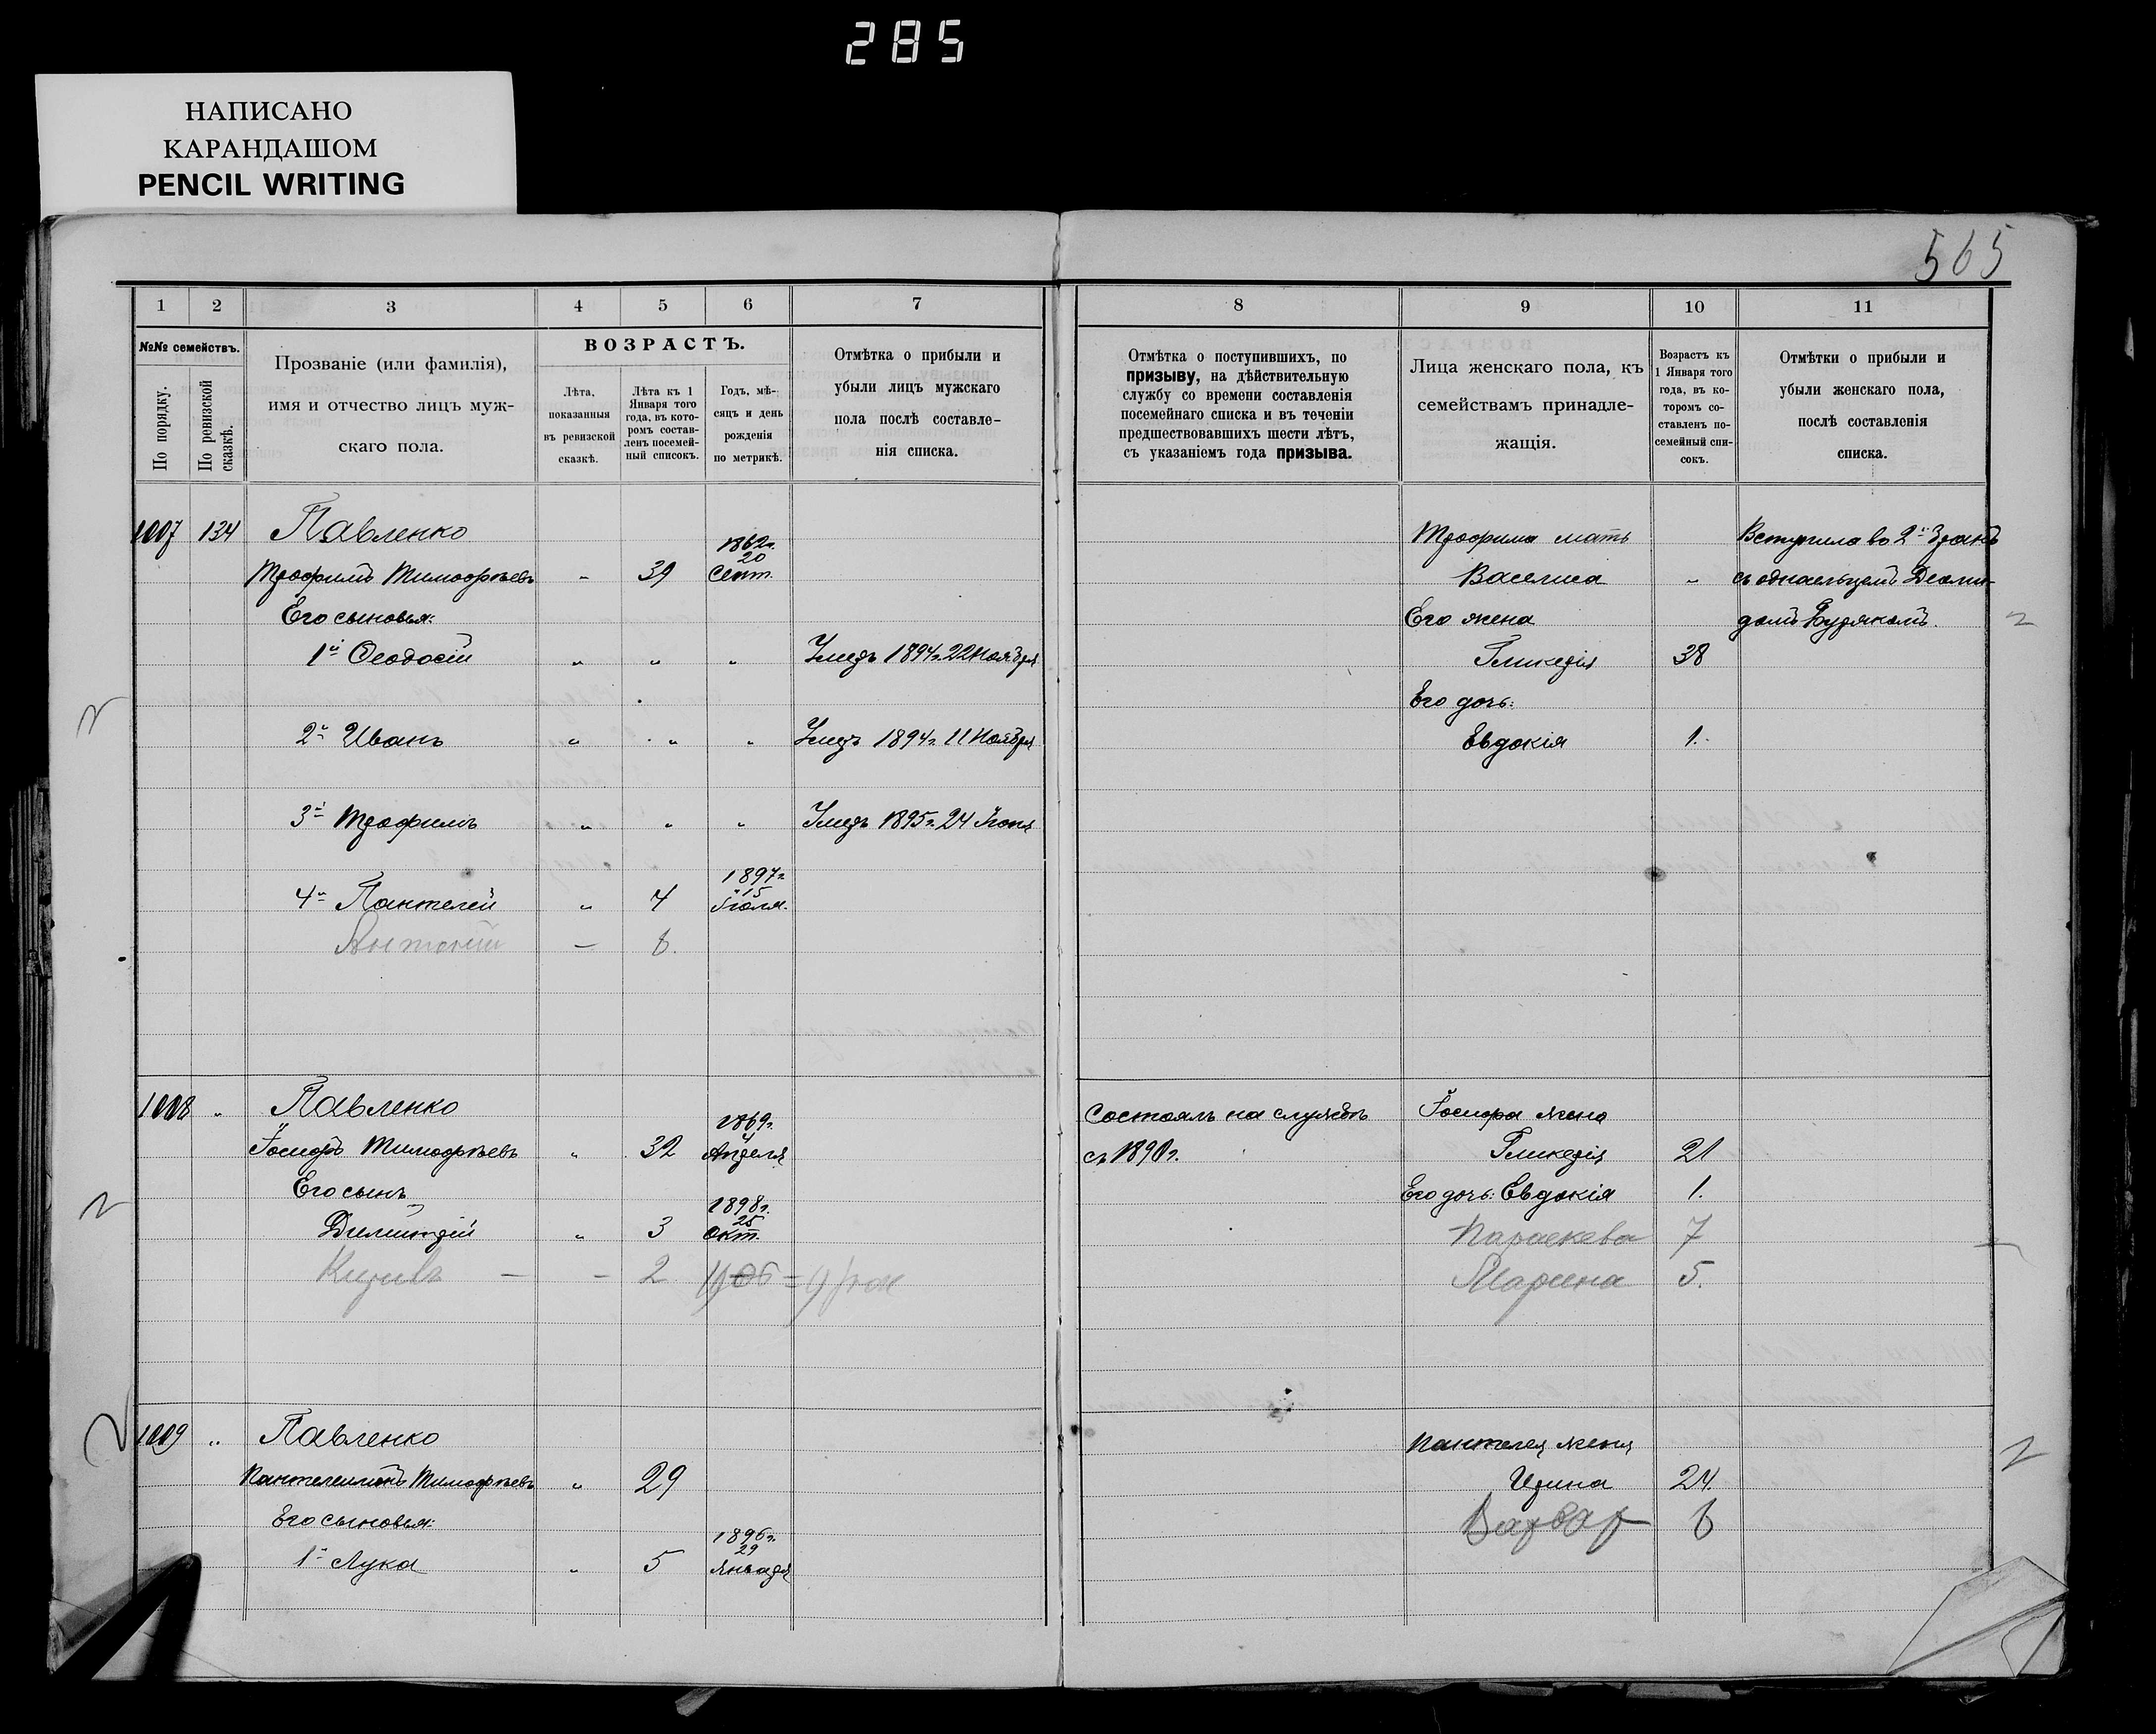 285
НАПИСАНО
КАРАНДАШОМ
PENCIL WRITING
565
1 2 3 4 5 6 7
№№ семействъ.
По порядку.
По ревизской сказкѣ.
Прозваніе (или фамилія),
имя и отчество лицъ муж-
скаго пола.
ВОЗРАСТЪ.
Лѣта,
показанныя
въ ревизской
сказкѣ.
Лѣта къ 1
Января того
года, въ кото-
ромъ состав-
ленъ посемей-
ный списокъ.
Годъ, мѣ-
сяцъ и день
рожденія
по метрикѣ.
Отмѣтка о прибыли и
убыли лицъ мужскаго
пола послѣ составле-
нія списка.
8 9 10 11
Отмѣтка о поступившихъ, по
призыву, на дѣйствительную
службу со времени составленія
посемейнаго списка и въ теченіи
предшествовавшихъ шести лѣтъ,
съ указаніемъ года призыва.
Лица женскаго пола, къ
семействамъ принадле-
жащія.
Возрастъ къ
1 Января того
года, въ ко-
торомъ со-
ставленъ по-
семейный спи-
сокъ.
Отмѣтки о прибыли и
убыли женскаго пола,
послѣ составленія
списка.
1007 134 Павленко
Трофимъ Тимофѣевъ " 39 1862г. 20 Сент.
Его сыновья:
1й Ѳеодосій " " " Умеръ 1894г. 22 Ноября
2й Иванъ " " " Умеръ 1894г. 11 Ноября
3й Трофимъ " " " Умеръ 1895г. 24 Іюня
4й Пантелей " 4 1897г. 15 Іюля.
Антоній — 6.
Трофима мать
Василиса "
Вступила во 2й бракъ
съ односельцемъ
Его жена
Гликерія 38
Его дочь:
Евдокія 1.
1008 " Павленко
Іосифъ Тимофѣевъ " 32 1869г. 4 Апрѣля
Его сынъ
Димитрій " 3 1898г. 25 Окт.
— — 2 1906
Состоялъ на службѣ
съ 1890г.
Іосифа жена
Гликерія 21
Его дочь: Евдокія 1.
Параскева 7
Марина 5.
1009 " Павленко
Пантелеимонъ Тимофѣевъ " 29
Его сыновья:
1й Лука " 5 1896г. 29 Января
Пантелея жена
Ирина 24.
Варвар 6